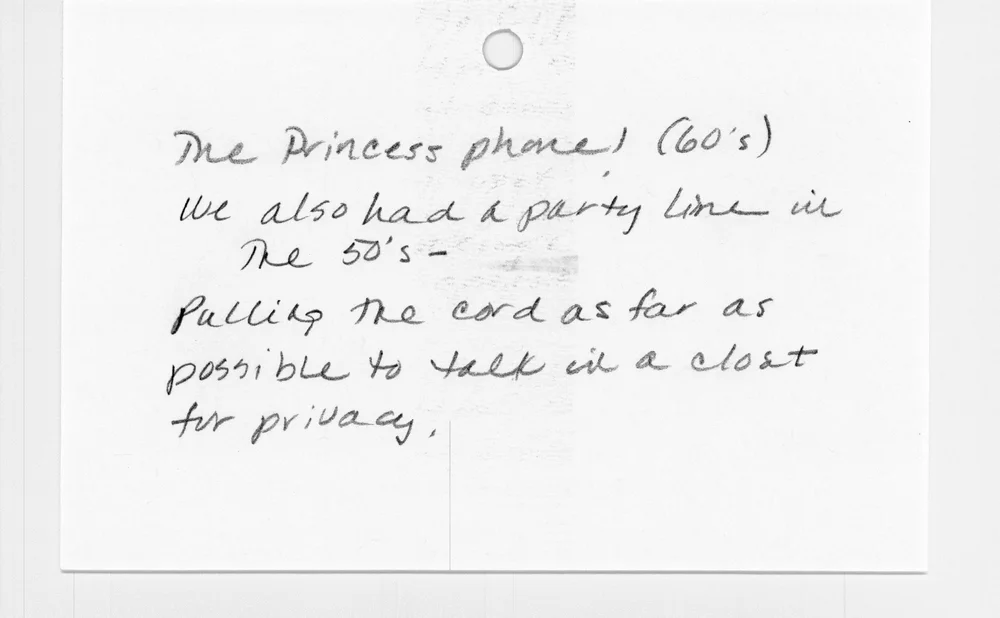 The Princess phone! (60's)
We also had a party line in
The 50's -
Pulling the cord as far as
possible to talk in a closat
for privacy.